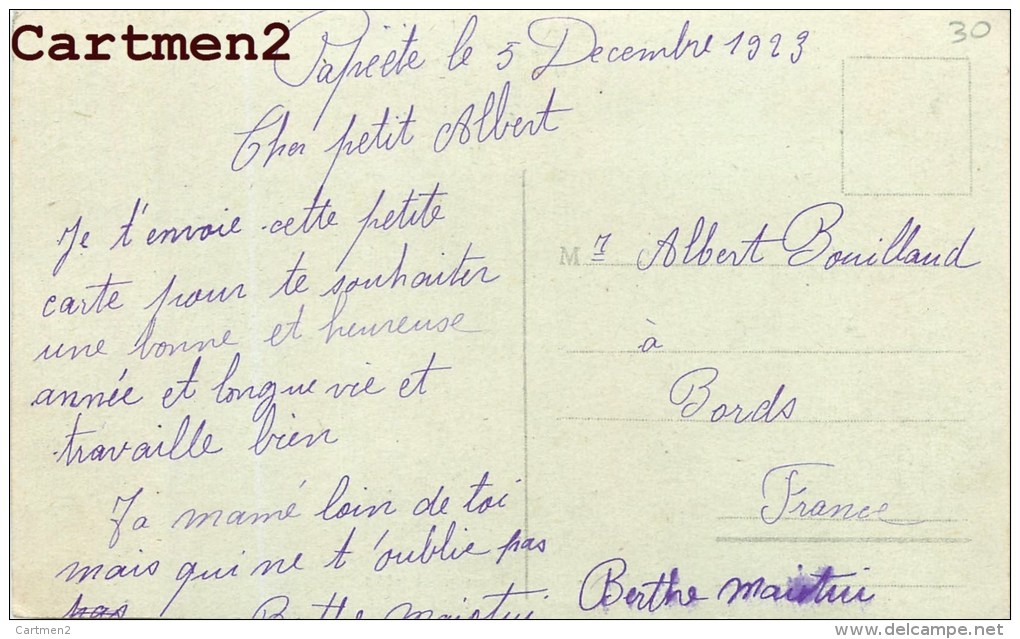 Cartmen2
30
Papéete le 5 Decembre 1923
Cher petit Albert
Je t'envoie cette petite
carte pour te souhaiter
une bonne et heureuse
année et longue vie et
travaille bien
Ta mamé loin de toi
mais qui ne t'oublie pas
pas
Berthe
Mr Albert Bouilland
à
Bords
France
Berthe
Cartmen2
www.delcampe.net